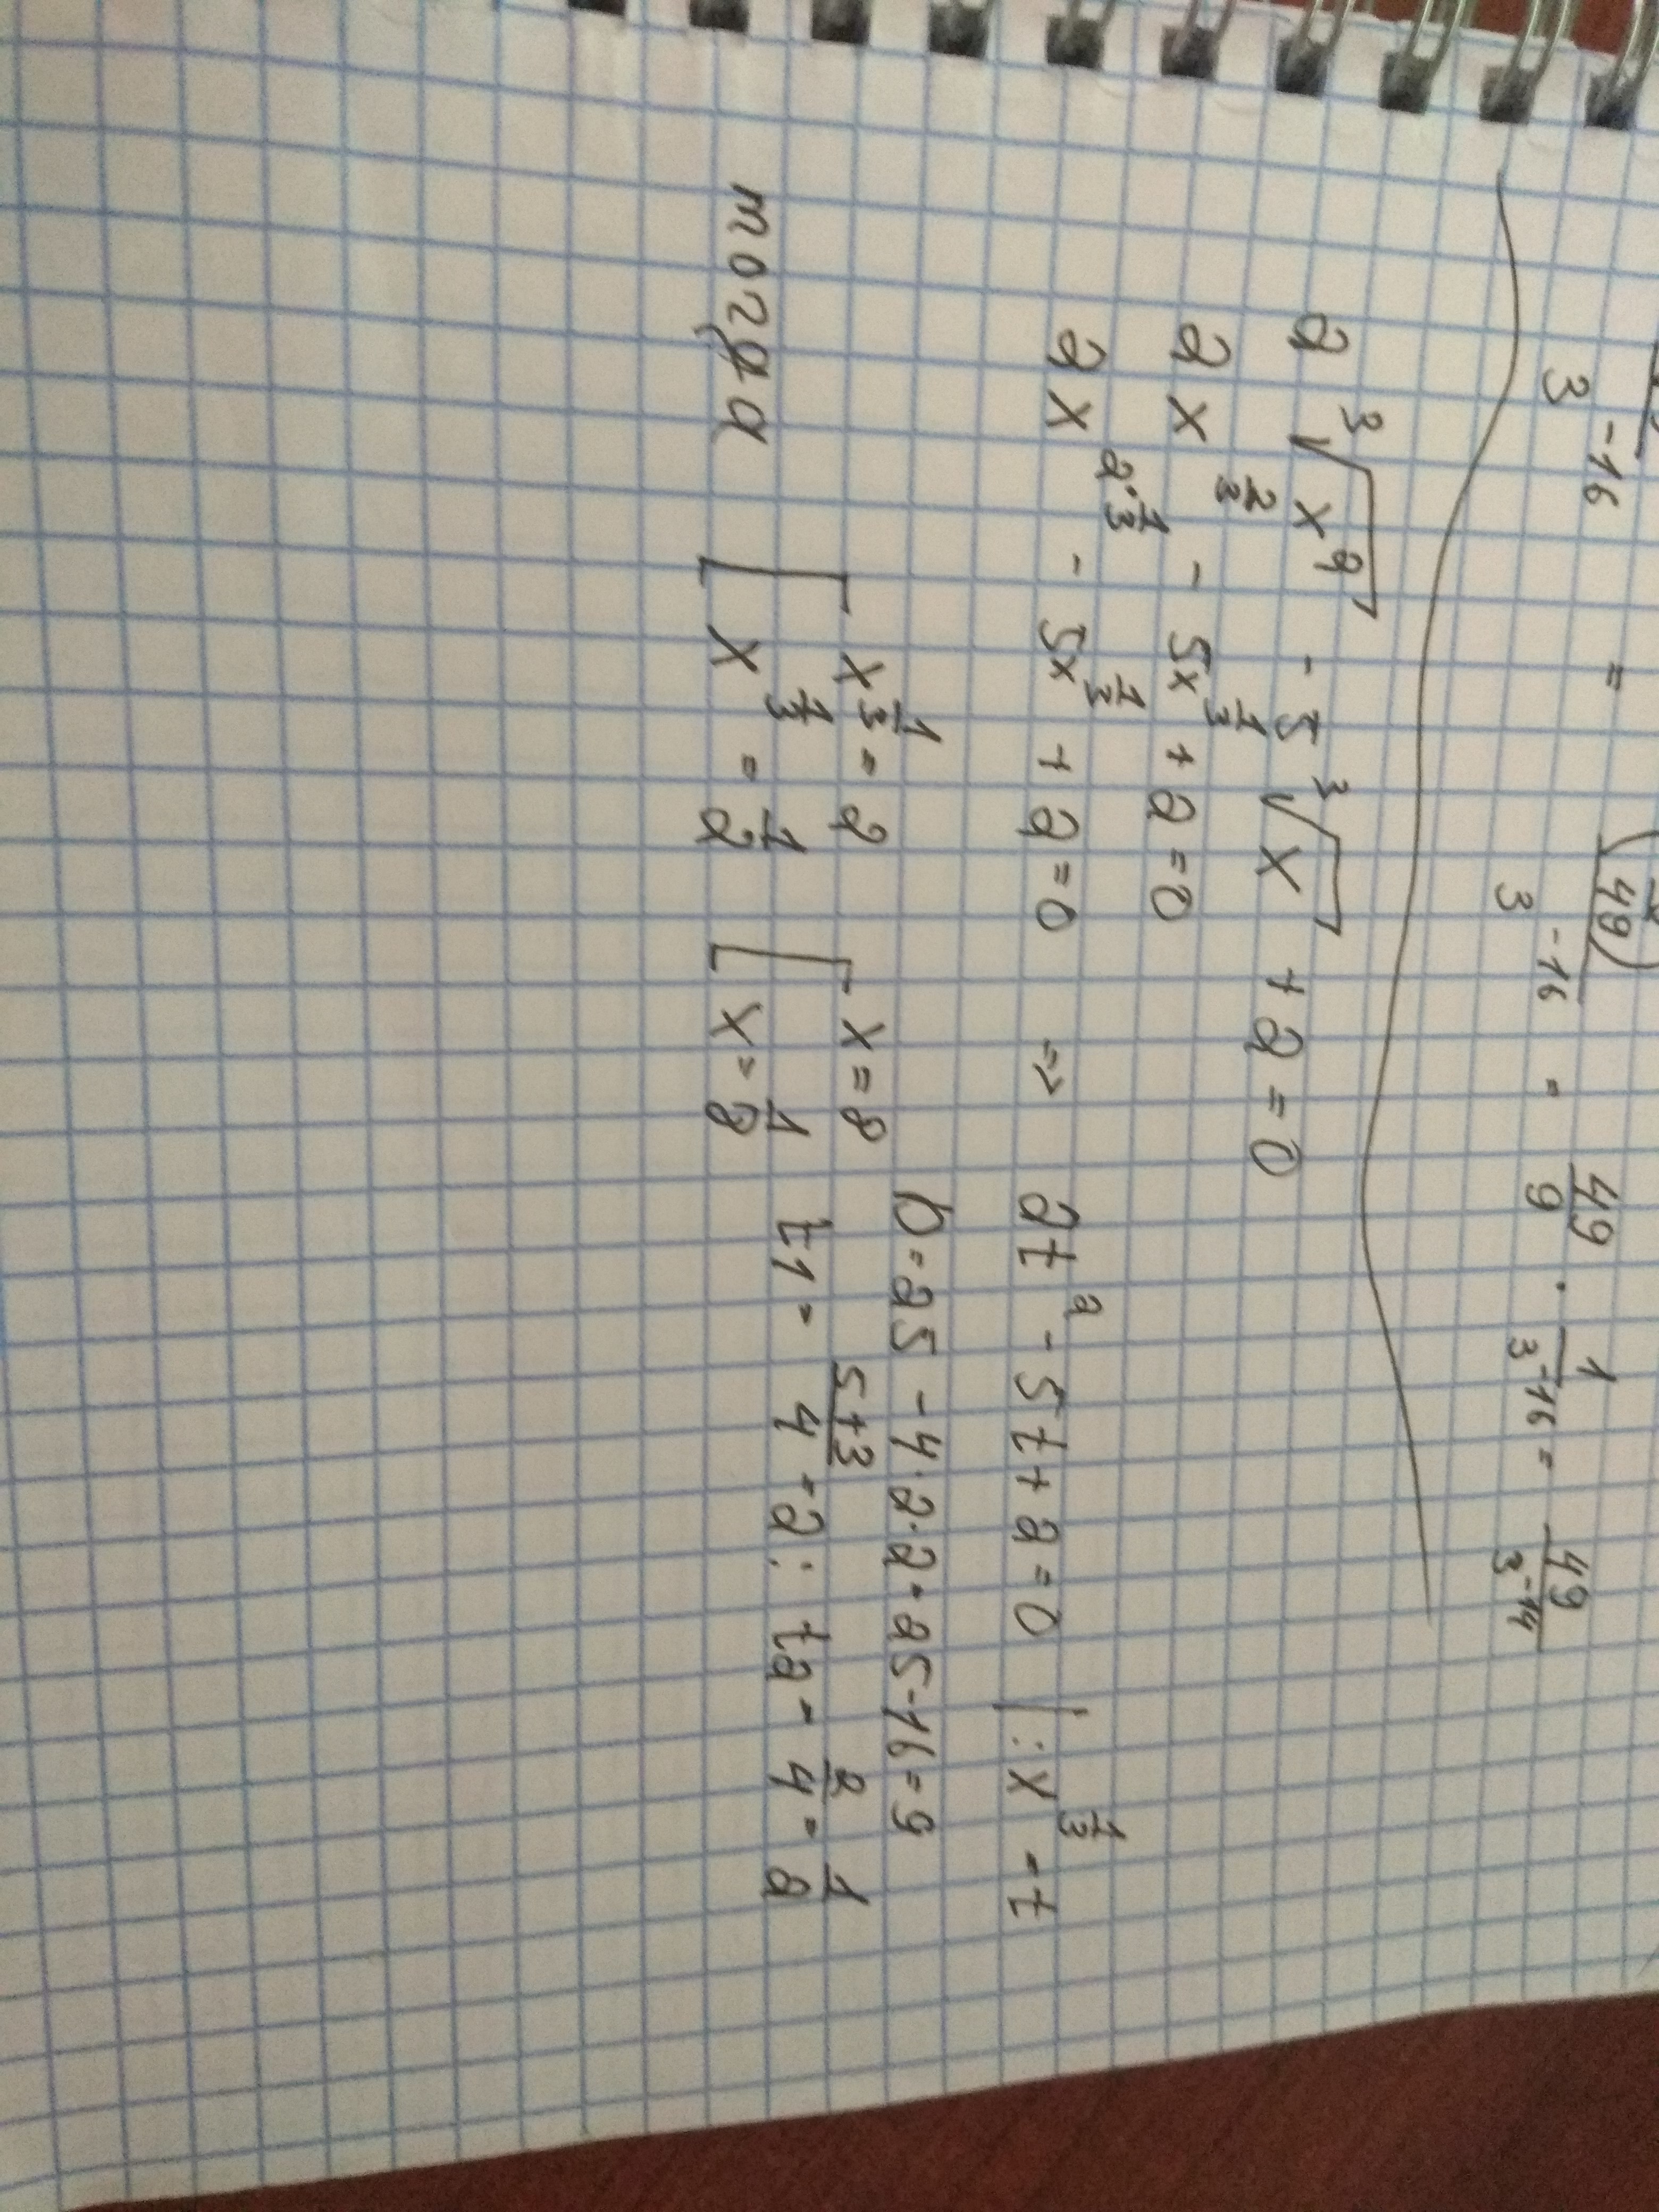 -16
3 = 49) -16 3 = 49/9 · 1/3^-16 = 49/3^-14
2 ∛x² - 5 ∛x + 2 = 0
2x^(2/3) - 5x^(1/3) + 2 = 0
2x^(2·1/3) - 5x^(1/3) + 2 = 0 => 2t² - 5t + 2 = 0 | : x^(1/3) = t
D = 25 - 4·2·2 = 25 - 16 = 9
t1 = (5+3)/4 = 2; t2 = 2/4 = 1/2
тогда [ x^(1/3) = 2 [ x = 8
x^(1/3) = 1/2 x = 1/8